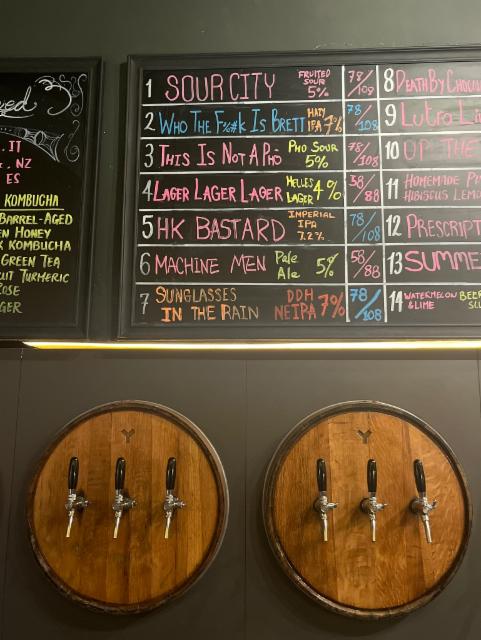 ed
.IT
, NZ
ES
KOMBUCHA
BARREL-AGED
EN HONEY
K KOMBUCHA
GREEN TEA
UIT TURMERIC
OSE
GER
1 SOUR CITY FRUITED SOUR 5% 78/109
2 WHO THE F%#K IS BRETT HAZY IFA 7% 78/108
3 THIS IS NOT A PHO PHO SOUR 5% 78/108
4 LAGER LAGER LAGER HELLES LAGER 4% 58/88
5 HK BASTARD IMPERIAL IPA 7.2% 78/108
6 MACHINE MEN Pale Ale 5% 58/88
7 SUNGLASSES IN THE RAIN DDH NEIPA 7% 78/108
8 DEATH BY CHOCO
9 Lutra L
10 UP THE
11 HOMEMADE PI
HIBISCUS LEMO
12 PRESCRIPT
13 SUMME
14 WATERMELON & LIME BEER SLU
Y
Y